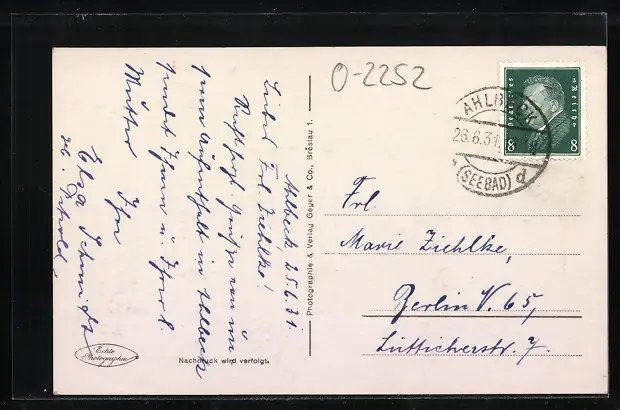 O-2252
Ahlbeck 25.6.31.
Liebes Frl. Ziehlke!
Recht herzl. Grüße von un
serem Aufenthalt in Ahlbeck
sendet Ihnen u. Ihrer l.
Mutter Ihre
Elsa Schmidt
Echte Photographie
Nachdruck wird verfolgt.
Photographie & Verlag Geyer & Co., Breslau 1.
Deutsches Reich
8 8
AHLBECK
26.6.31.
(SEEBAD) d
Frl.
Marie Ziehlke,
Berlin N. 65,
Lütticherstr. 7.